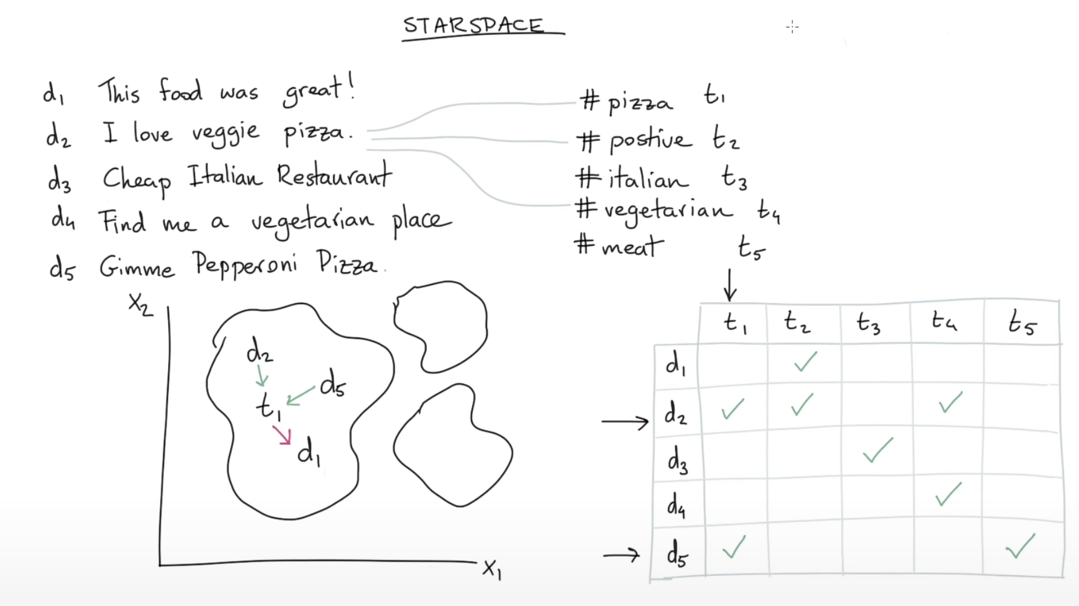 STARSPACE
d1 This food was great!
d2 I love veggie pizza.
d3 Cheap Italian Restaurant
d4 Find me a vegetarian place
d5 Gimme Pepperoni Pizza.
# pizza t1
# postive t2
# italian t3
# vegetarian t4
# meat t5
x2
d2
d5
t1
d1
x1
t1 t2 t3 t4 t5
d1 ✓
d2 ✓ ✓ ✓
d3 ✓
d4 ✓
d5 ✓ ✓